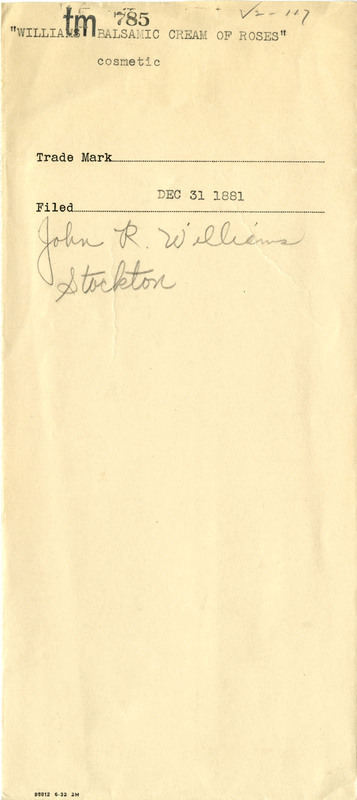 tm 785 V2-117
"WILLIAMS' BALSAMIC CREAM OF ROSES"
cosmetic
Trade Mark
DEC 31 1881
Filed
John R. Williams
Stockton
98812 6-32 2M